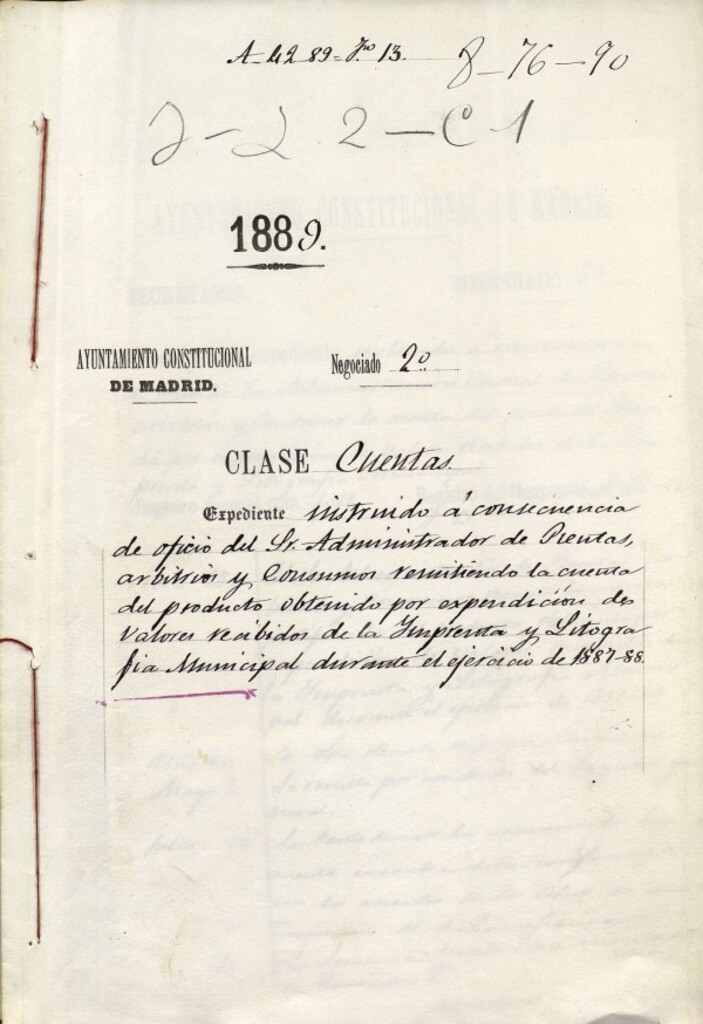 A-42 89-Fo 13.
8-76-90
2-22-C1
1889.
AYUNTAMIENTO CONSTITUCIONAL
DE MADRID.
Negociado 2º
CLASE Cuentas.
Expediente instruido á consecuencia
de oficio del Sr. Administrador de Rentas,
arbitrios y Consumos remitiendo la cuenta
del producto obtenido por expendición de
valores recibidos de la Imprenta y Litogra
fia Municipal durante el ejercicio de 1887-88.